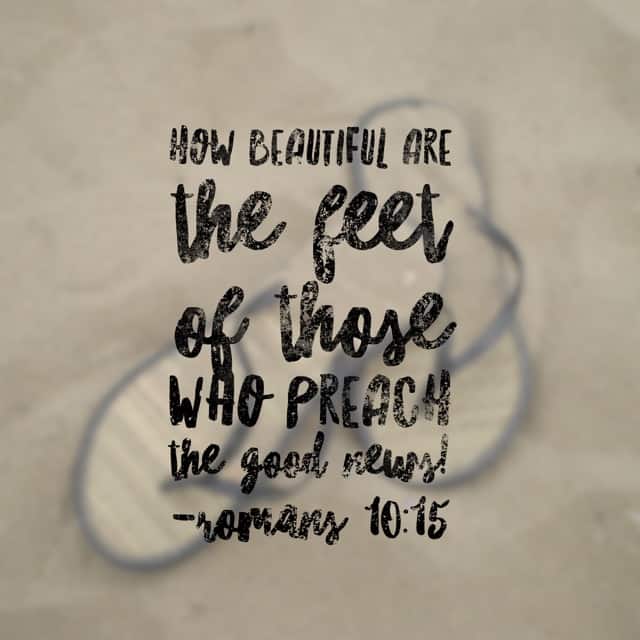 HOW BEAUTIFUL ARE
the feet
of those
WHO PREACH
the good news!
-romans 10:15